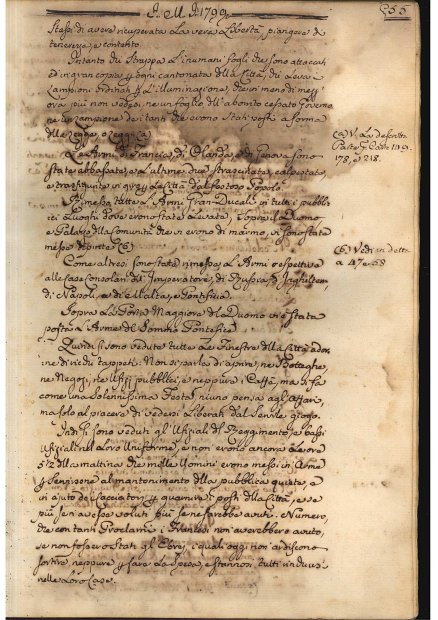 J. M. J. 1799.
stessi di avere ricuperata La vera Libertà, piangere di
tenerezza, e contento.
Intanto di strappa L'inumani fogli che sono attaccati
ed in gran copia p ogni cantonata della Città, di Leva
Lampioni ordinati p L'Illuminazione, che in meno di mezz'
ora più non vedesi, ne un foglio dell'aborrito espato Governo
ne un Lampione dei tanti che erono stati posti a forma
della Legge
(a) V. La descritta
Parte
178, e 218.
Le Armi di Francia, di Olanda, e di Genova sono
state abbassate, e L'ultime due strascinate, calpestate,
e tutta La Città dal festoso Popolo.
Rimesse tutte L'Armi Gran-Ducali in tutti i pubbli-
ci Luoghi dove erono state Levate, sopra il Duomo
e Palazzo della Comunità che vi erono di marmo, vi sono state
messe dipinte (b)
(b) Vedi in detta
a 47 e 58
Come altresì sono stati rimessi L'Armi respettive
alle Case Consolari dell'Imperatore, di Russia, d'Inghilterra
di Napoli, e di Malta, e Pontificia.
Sopra La Porta Maggiore del Duomo vi è stata
posta L'Arme del Sommo Pontefice
Quindi si sono vedute tutte Le Finestre della Città ador-
ne di ricchi tappeti. Non si parla di aprire, ne Botteghe,
ne Negozi, ne Ufizj pubblici, e neppure i Caffà, ma si fa
come una Solennissima Festa, niuno pensa agl'Affari
ma solo al piacere di vedersi Liberati dal Servile giogo.
Indi si sono veduti gl'Ufiziali del Reggimento, e bassi
Ufiziali nel Loro Uniforme, e non erono ancora Le ore
5 1/2 della mattina che mille Uomini erono messi in Arme
p servizione al mantenimento della pubblica quiete, e
in ajuto dei Cacciatori p guarnire i posti della Città, e se
più se ne avesse voluti più se ne sarebbe avuti. Numero,
che con tanti Proclami i Francesi non averebbero avuto,
se non fossero stati gl'Ebrei, i quali oggi non ardiscono
sortire neppure p fare La Spesa, e stannosi tutti rinchiusi
nelle Loro Case.